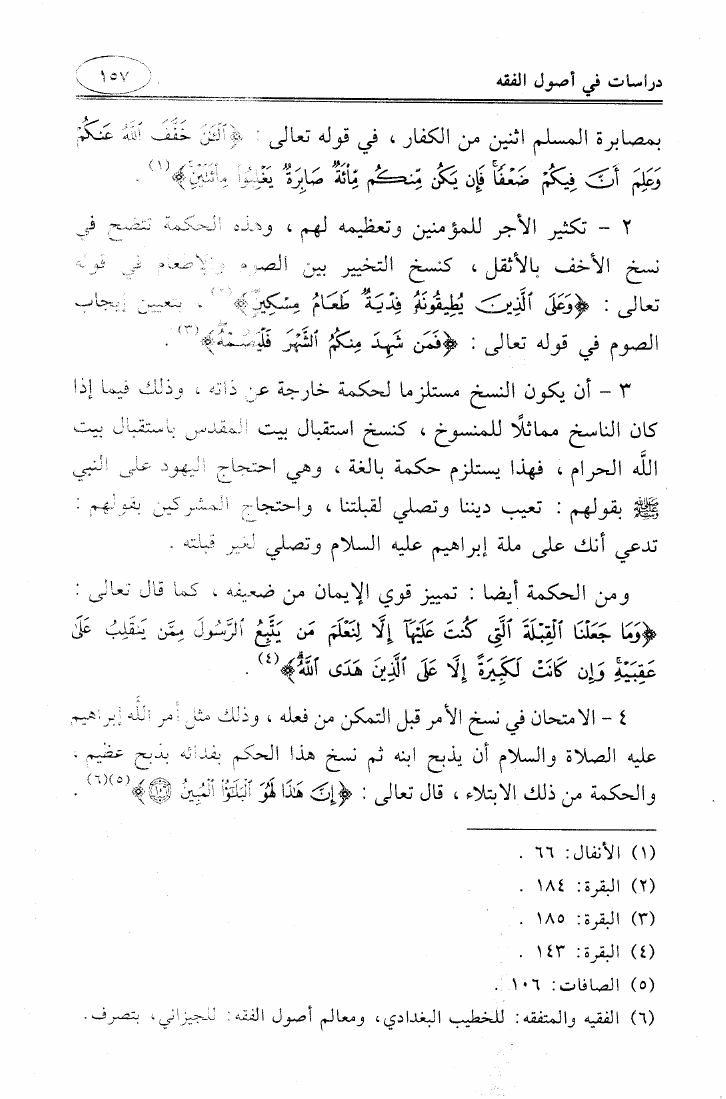 دراسات في أصول الفقه ١٥٧
بمصابرة المسلم اثنين من الكفار ، في قوله تعالى : ﴿ٱلْـَٰٔنَ خَفَّفَ ٱللَّهُ عَنكُمْ
وَعَلِمَ أَنَّ فِيكُمْ ضَعْفًا فَإِن يَكُن مِّنكُم مِّائَةٌ صَابِرَةٌ يَغْلِبُوا۟ مِا۟ئَتَيْنِ﴾(١) .
٢ - تكثير الأجر للمؤمنين وتعظيمه لهم ، وهذه الحكمة تتضح في
نسخ الأخف بالأثقل ، كنسخ التخيير بين الصوم والإطعام في قوله
تعالى : ﴿وَعَلَى ٱلَّذِينَ يُطِيقُونَهُۥ فِدْيَةٌ طَعَامُ مِسْكِينٍ﴾(٢) ، بتعيين إيجاب
الصوم في قوله تعالى : ﴿فَمَن شَهِدَ مِنكُمُ ٱلشَّهْرَ فَلْيَصُمْهُ﴾(٣) .
٣ - أن يكون النسخ مستلزما لحكمة خارجة عن ذاته ، وذلك فيما إذا
كان الناسخ مماثلًا للمنسوخ ، كنسخ استقبال بيت المقدس باستقبال بيت
اللَّه الحرام ، فهذا يستلزم حكمة بالغة ، وهي احتجاج اليهود على النبي
ﷺ بقولهم : تعيب ديننا وتصلي لقبلتنا ، واحتجاج المشركين بقولهم :
تدعي أنك على ملة إبراهيم عليه السلام وتصلي لغير قبلته .
ومن الحكمة أيضا : تمييز قوي الإيمان من ضعيفه ، كما قال تعالى :
﴿وَمَا جَعَلْنَا ٱلْقِبْلَةَ ٱلَّتِى كُنتَ عَلَيْهَآ إِلَّا لِنَعْلَمَ مَن يَتَّبِعُ ٱلرَّسُولَ مِمَّن يَنقَلِبُ عَلَىٰ
عَقِبَيْهِ وَإِن كَانَتْ لَكَبِيرَةً إِلَّا عَلَى ٱلَّذِينَ هَدَى ٱللَّهُ﴾(٤) .
٤ - الامتحان في نسخ الأمر قبل التمكن من فعله ، وذلك مثل أمر اللَّه إبراهيم
عليه الصلاة والسلام أن يذبح ابنه ثم نسخ هذا الحكم بفدائه بذبح عظيم ،
والحكمة من ذلك الابتلاء ، قال تعالى : ﴿إِنَّ هَٰذَا لَهُوَ ٱلْبَلَٰٓؤُا۟ ٱلْمُبِينُ ١٠٦﴾(٥)(٦) .
(١) الأنفال: ٦٦ .
(٢) البقرة: ١٨٤ .
(٣) البقرة: ١٨٥ .
(٤) البقرة: ١٤٣ .
(٥) الصافات: ١٠٦ .
(٦) الفقيه والمتفقه: للخطيب البغدادي، ومعالم أصول الفقه: للجيزاني، بتصرف.